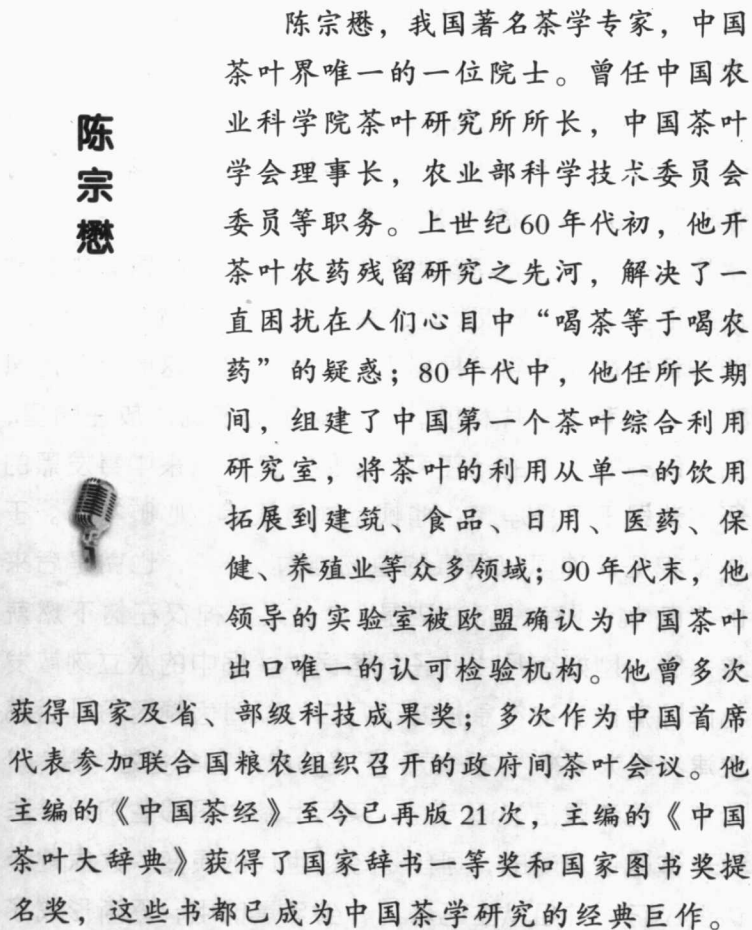 陈宗懋
陈宗懋，我国著名茶学专家，中国
茶叶界唯一的一位院士。曾任中国农
业科学院茶叶研究所所长，中国茶叶
学会理事长，农业部科学技术委员会
委员等职务。上世纪60年代初，他开
茶叶农药残留研究之先河，解决了一
直困扰在人们心目中“喝茶等于喝农
药”的疑惑；80年代中，他任所长期
间，组建了中国第一个茶叶综合利用
研究室，将茶叶的利用从单一的饮用
拓展到建筑、食品、日用、医药、保
健、养殖业等众多领域；90年代末，他
领导的实验室被欧盟确认为中国茶叶
出口唯一的认可检验机构。他曾多次
获得国家及省、部级科技成果奖；多次作为中国首席
代表参加联合国粮农组织召开的政府间茶叶会议。他
主编的《中国茶经》至今已再版21次，主编的《中国
茶叶大辞典》获得了国家辞书一等奖和国家图书奖提
名奖，这些书都已成为中国茶学研究的经典巨作。